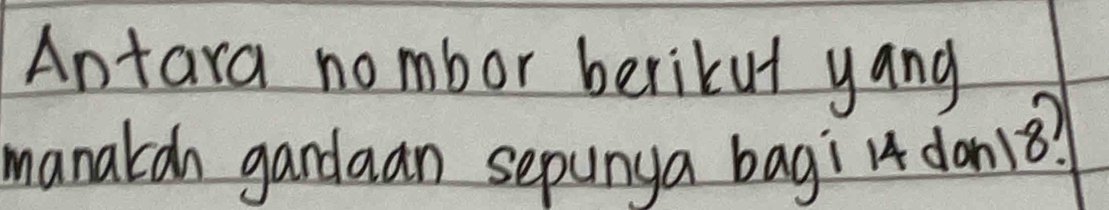 Antara nombor berikut yang
manakah gandaan sepunya bagi 14 dan 18?